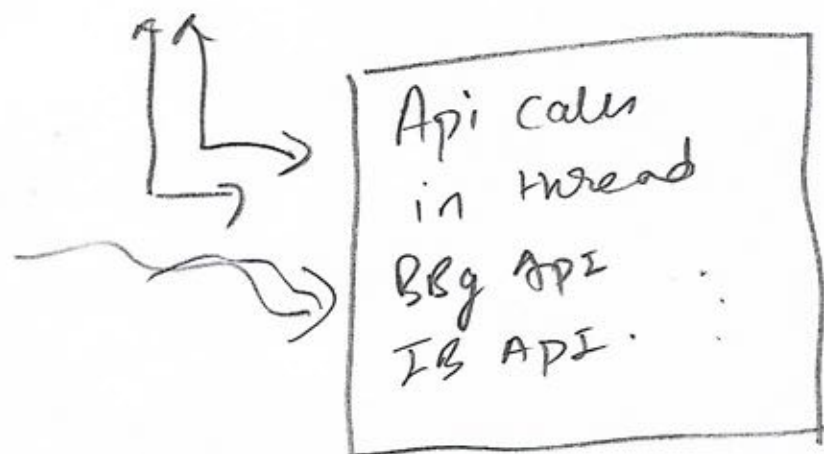 Api calls
in thread
BBg API
IB API.